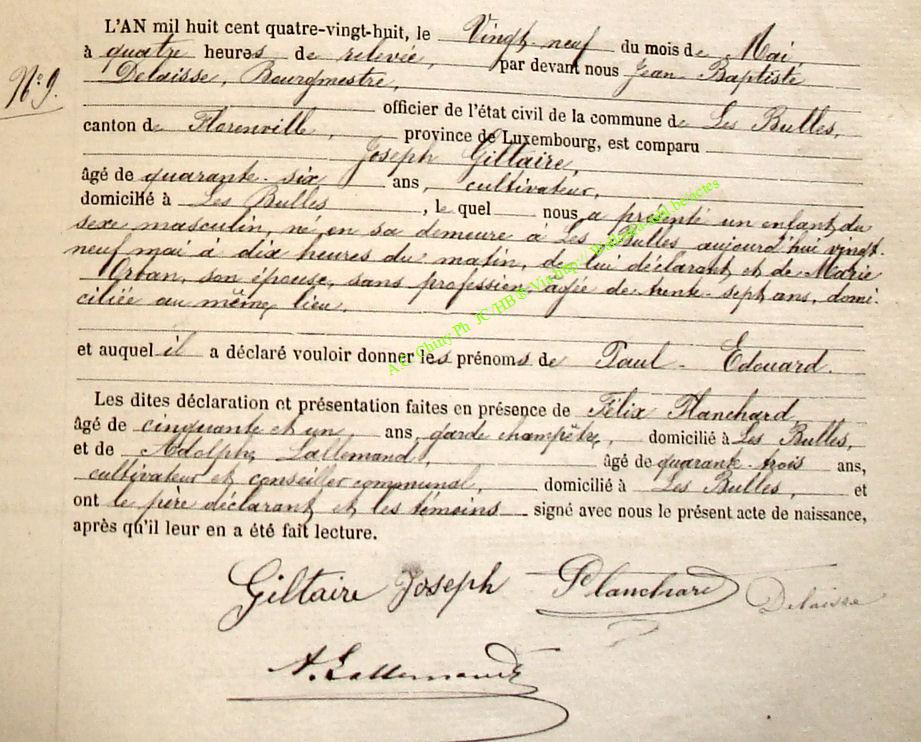 L'AN mil huit cent quatre-vingt-huit, le Vingt neuf du mois de Mai,
à quatre heures de relevée, par devant nous Jean Baptiste
N° 9. Delaisse, Bourgmestre,
officier de l'état civil de la commune de Les Bulles,
canton de Florenville, province de Luxembourg, est comparu
Joseph Giltaire,
âgé de quarante-six ans, cultivateur,
domicilié à Les Bulles, le quel nous a présenté un enfant du
sexe masculin, né en sa demeure à Les Bulles aujourd'hui vingt-
neuf mai à dix heures du matin, de lui déclarant et de Marie
Orban, son épouse, sans profession, agée de trente-sept ans, domi-
ciliée au même lieu.
et auquel il a déclaré vouloir donner les prénoms de Paul-Edouard.
Les dites déclaration et présentation faites en présence de Félix Planchard
âgé de cinquante et un ans, garde champêtre, domicilié à Les Bulles,
et de Adolphe Lallemand, âgé de quarante-trois ans,
cultivateur et conseiller communal, domicilié à Les Bulles, et
ont le père déclarant et les témoins signé avec nous le présent acte de naissance,
après qu'il leur en a été fait lecture.
Giltaire Joseph Planchard Delaisse
A. Lallemand